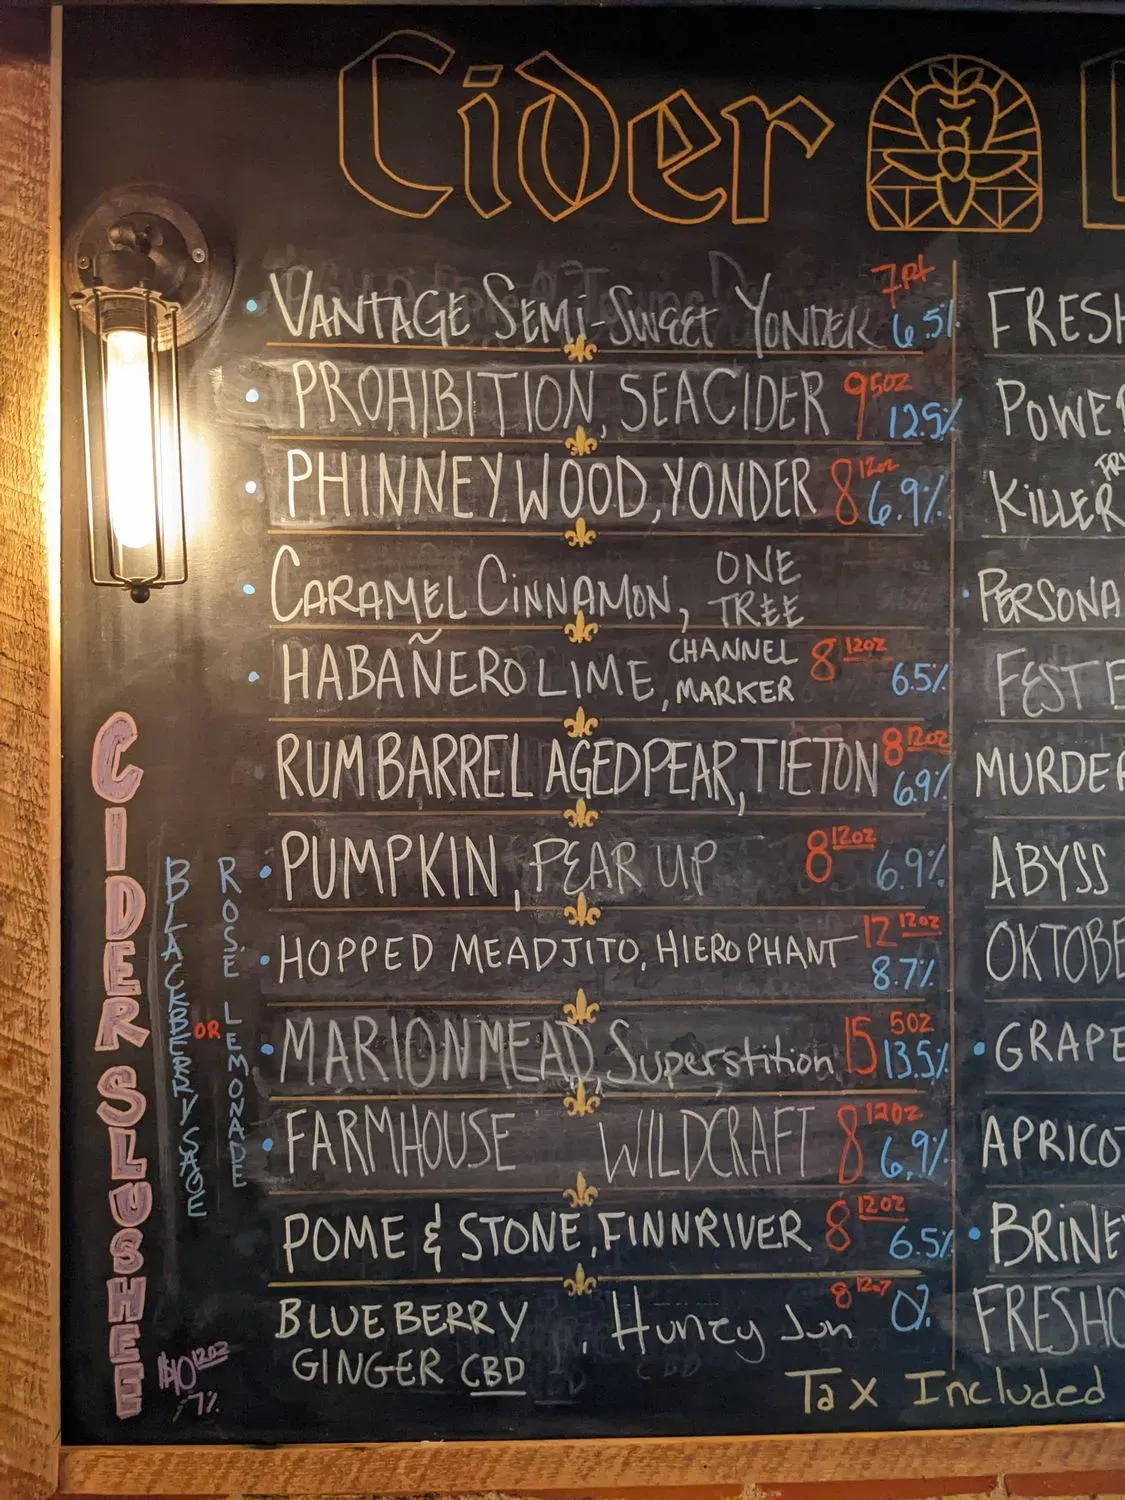 Cider
VANTAGE SEMI-SWEET YONDER 7pt 6.5%
PROHIBITION, SEACIDER 9 5oz 12.5%
PHINNEYWOOD, YONDER 8 12oz 6.9%
CARAMEL CINNAMON, ONE TREE
HABAÑERO LIME, CHANNEL MARKER 8 12oz 6.5%
RUM BARREL AGED PEAR, TIETON 8 12oz 6.9%
PUMPKIN, PEAR UP 8 12oz 6.9%
HOPPED MEADJITO, HIEROPHANT 12 12oz 8.7%
MARION MEAD, Superstition 15 5oz 13.5%
FARMHOUSE WILDCRAFT 8 12oz 6.9%
POME & STONE, FINNRIVER 8 12oz 6.5%
BLUEBERRY GINGER CBD, Huney Jun 8 12oz 0%
Tax Included
CIDER SLUSHEE
BLACKBERRY SAGE
OR
ROSE LEMONADE
$10 12oz
7%
FRESH
POWE
KILLER
PERSONA
FEST
MURDER
ABYSS
OKTOBE
GRAPE
APRICOT
BRINEY
FRESHO